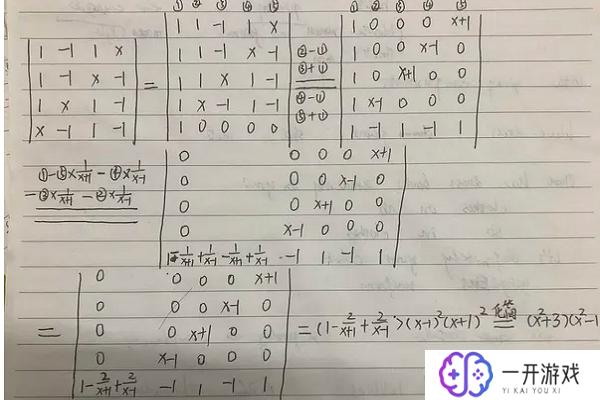 ① ② ③ ④ ⑤
| 1 -1 1 x | = | 1 1 -1 1 x | ②-① | 1 0 0 0 x+1 |
| 1 -1 x -1 | | 1 1 -1 x -1 | ③+① | 1 0 0 x-1 0 |
| 1 x 1 -1 | | 1 1 x 1 -1 | ④-① | 1 0 x+1 0 0 |
| x -1 1 -1 | | 1 x -1 1 -1 | ⑤+① | 1 x-1 0 0 0 |
| 1 0 0 0 0 | | 1 -1 1 -1 1 |
①-⑤×1/(x+1)-④×1/(x-1) | 0 0 0 0 x+1 |
-③×1/(x+1)-②×1/(x-1) | 0 0 0 x-1 0 |
| 0 0 x+1 0 0 |
| 0 x-1 0 0 0 |
| 1-1/(x+1)+1/(x-1)-1/(x+1)+1/(x-1) -1 1 -1 1 |
= | 0 0 0 0 x+1 |
| 0 0 0 x-1 0 |
| 0 0 x+1 0 0 | = (1-2/(x+1)+2/(x-1))(x-1)²(x+1)² 化简 = (x²+3)(x²-1
| 0 x-1 0 0 0 |
| 1-2/(x+1)+2/(x-1) -1 1 -1 1 |
一开游戏
YI KAI YOU XI